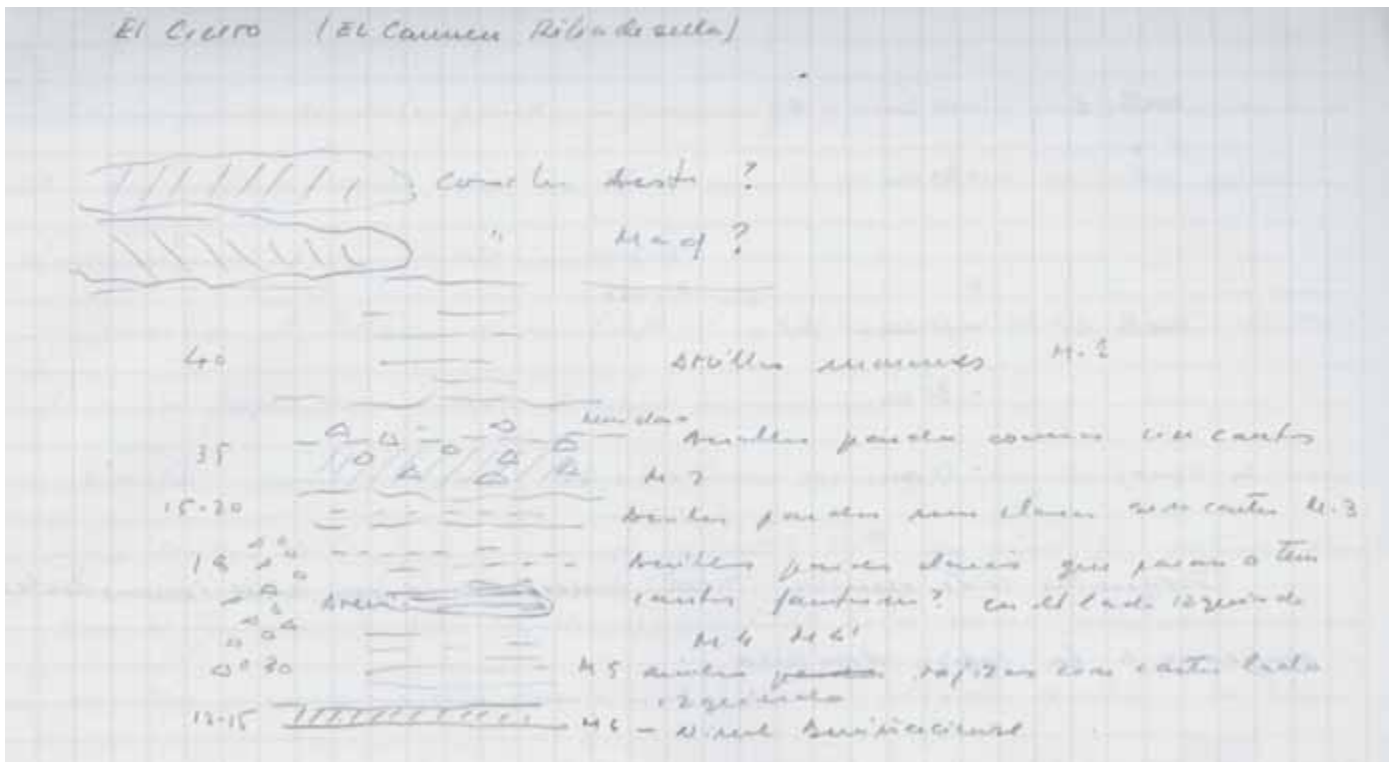 El Cierro (El Carmen Ribadesella)
?
" Mag ?
40 Arcillas marrones
35 Arcillas pardas con cantos
M-2
15-20 Arcillas pardas mas claras sin cantos M.3
18 Arcillas pardas claras que pasan a tener
Arena cantos ? en el lado izquierdo
M4 M4'
30 M5 arcillas rojizas con cantos lado
izquierdo
12-15 M6 - Nivel Auriñaciense